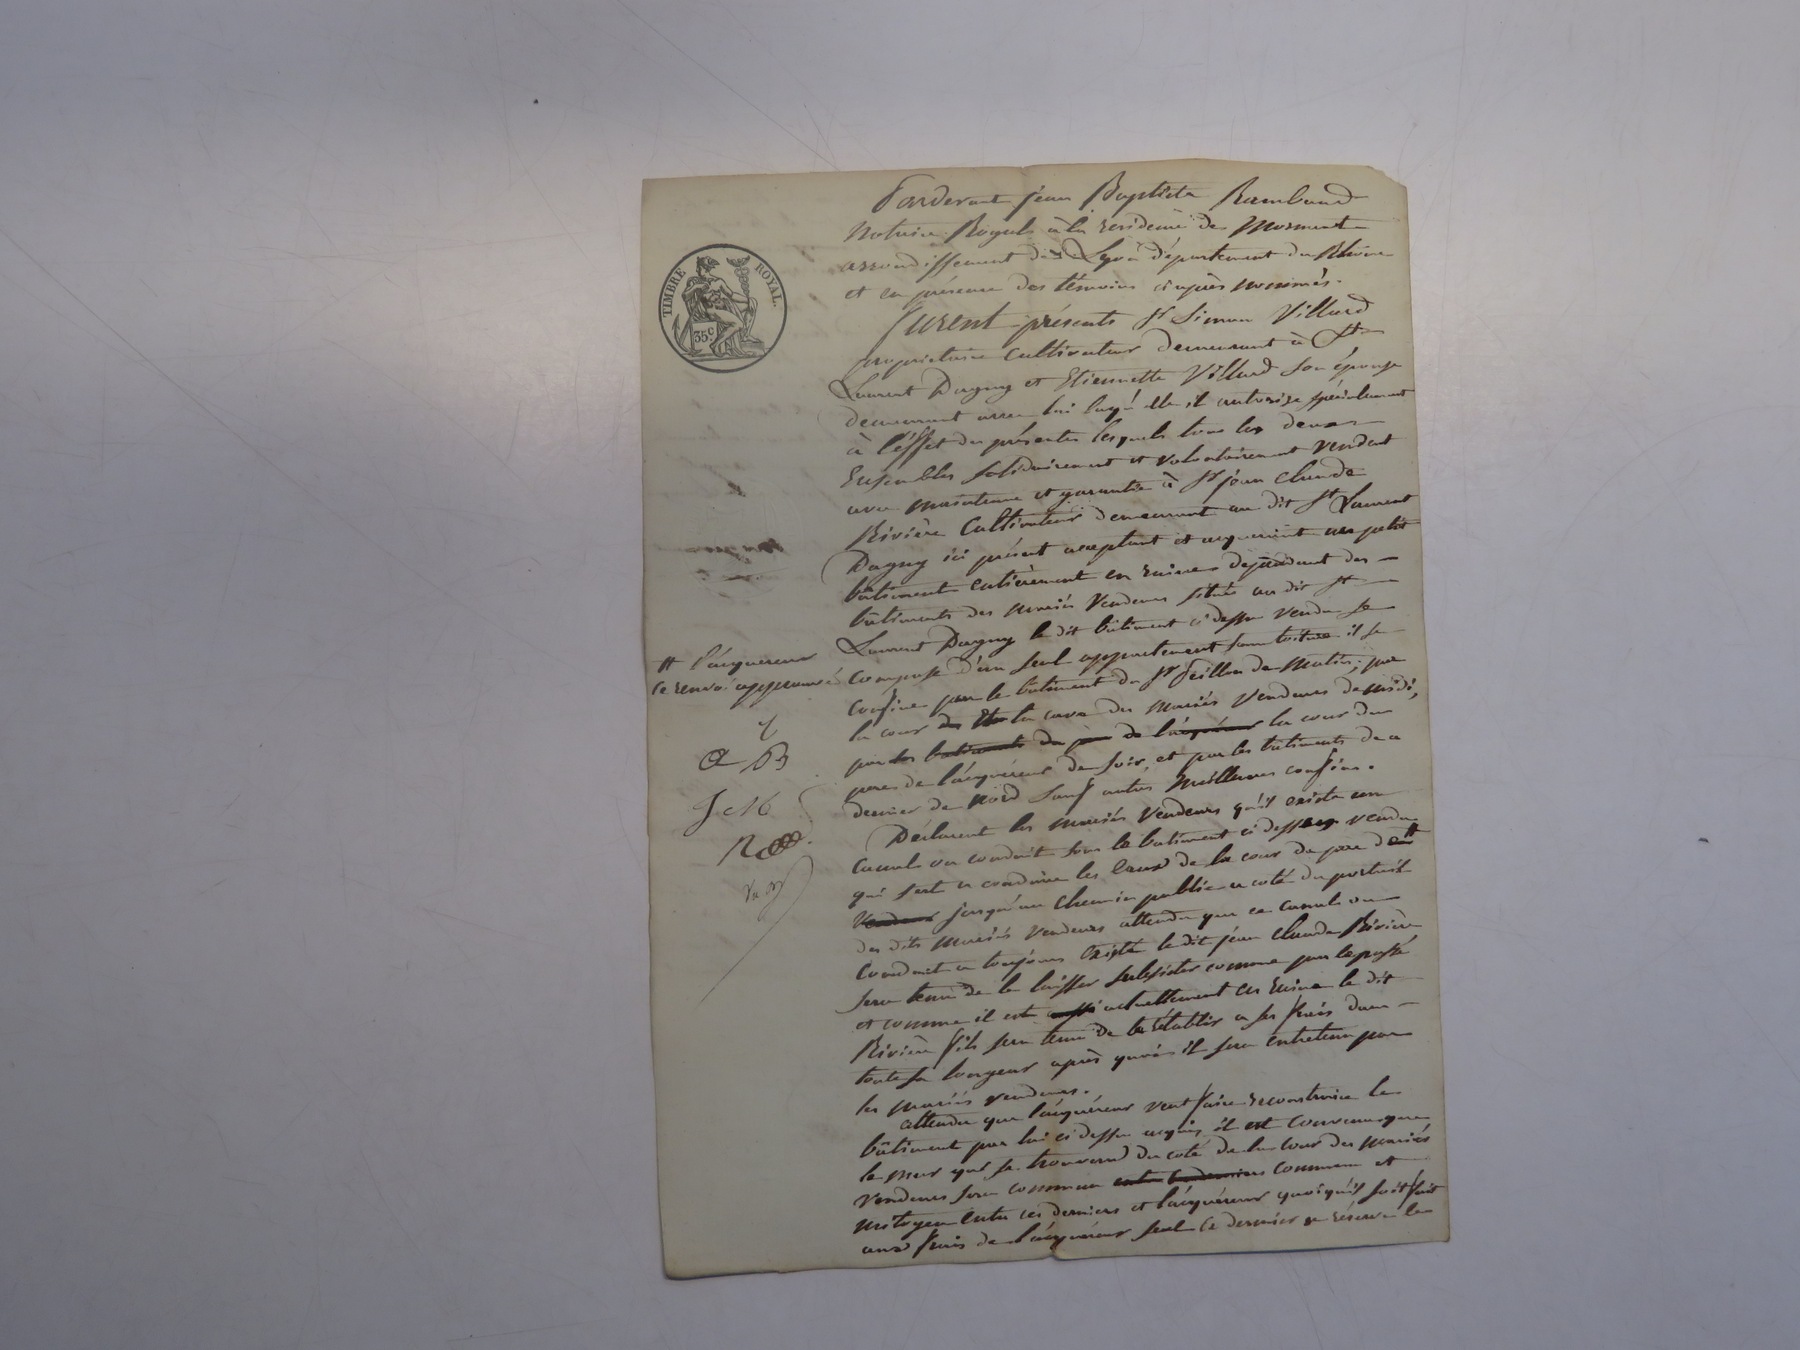 Pardevant jean Baptiste Rambaud
Notaire Royal à la residence de Mornant
arrondissement de Lyon département du Rhône
et en présence des témoins ci après nommés.
TIMBRE ROYAL.
35c
furent présents Sr Simon Villard
propriétaire cultivateur demeurant à St
Laurent Dagny et Etiennette Villard son épouse
demeurant avec lui laquelle il autorise spécialement
à l'éffet des présentes lesquels tous les deux
Ensembles solidairement et volontairement vendent
avec maintenue et garantie à Sr jean Claude
Rivière Cultivateur demeurant au dit St Laurent
Dagny ici présent acceptant et acquerrant un petit
bâtiment entièrement en ruines dépendant des
bâtiments des mariés Vendeurs situés au dit St
Laurent Dagny le dit bâtiment ci dessus vendu se
compose d'un seul appartement sans toiture il se
confine par le bâtiment du Sr de Matin; par
la cour de la cave des mariés Vendeurs de midi,
par les batiments du de l'acquéreur la cour du
pere de l'acquéreur de soir, et par les bâtiments de ce
dernier de nord sauf autres meilleures confins.
# l'acquereur
ce renvoi approuvé
JcR
Déclarent les mariés Vendeurs qu'il existe un
canal ou conduit sous le batiment ci dessus vendu
qui sert a conduire les eaux de la cour du pere de #
Vendeur jusqu'au chemin public a coté du portail
des dits mariés Vendeurs attendu que ce canal ou
Conduit a toujours existé le dit jean Claude Rivière
sera tenu de le laisser subsister comme par le passé
et comme il est aussi actuellement en ruine le dit
Rivière fils sera tenu de le rétablir a ses frais dans
toute sa longeur après quoi il sera entretenu par
les mariés vendeurs.
attendu que l'acquéreur veut faire reconstruire le
bâtiment par lui ci dessus acquis, il est convenu que
le mur qui se trouvera du coté de la cour des mariés
Vendeurs sera commun commun et
mitoyen entre ces derniers et l'acquéreur quoiqu'il soit fait
aux frais de l'acquéreur seul ce dernier se réserve le